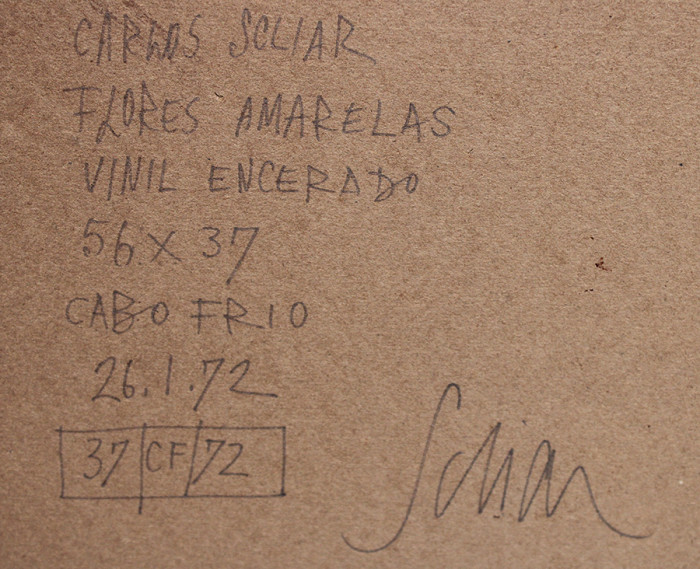 CARLOS SCLIAR
FLORES AMARELAS
VINIL ENCERADO
56 X 37
CABO FRIO
26.1.72
37|CF|72
Scliar